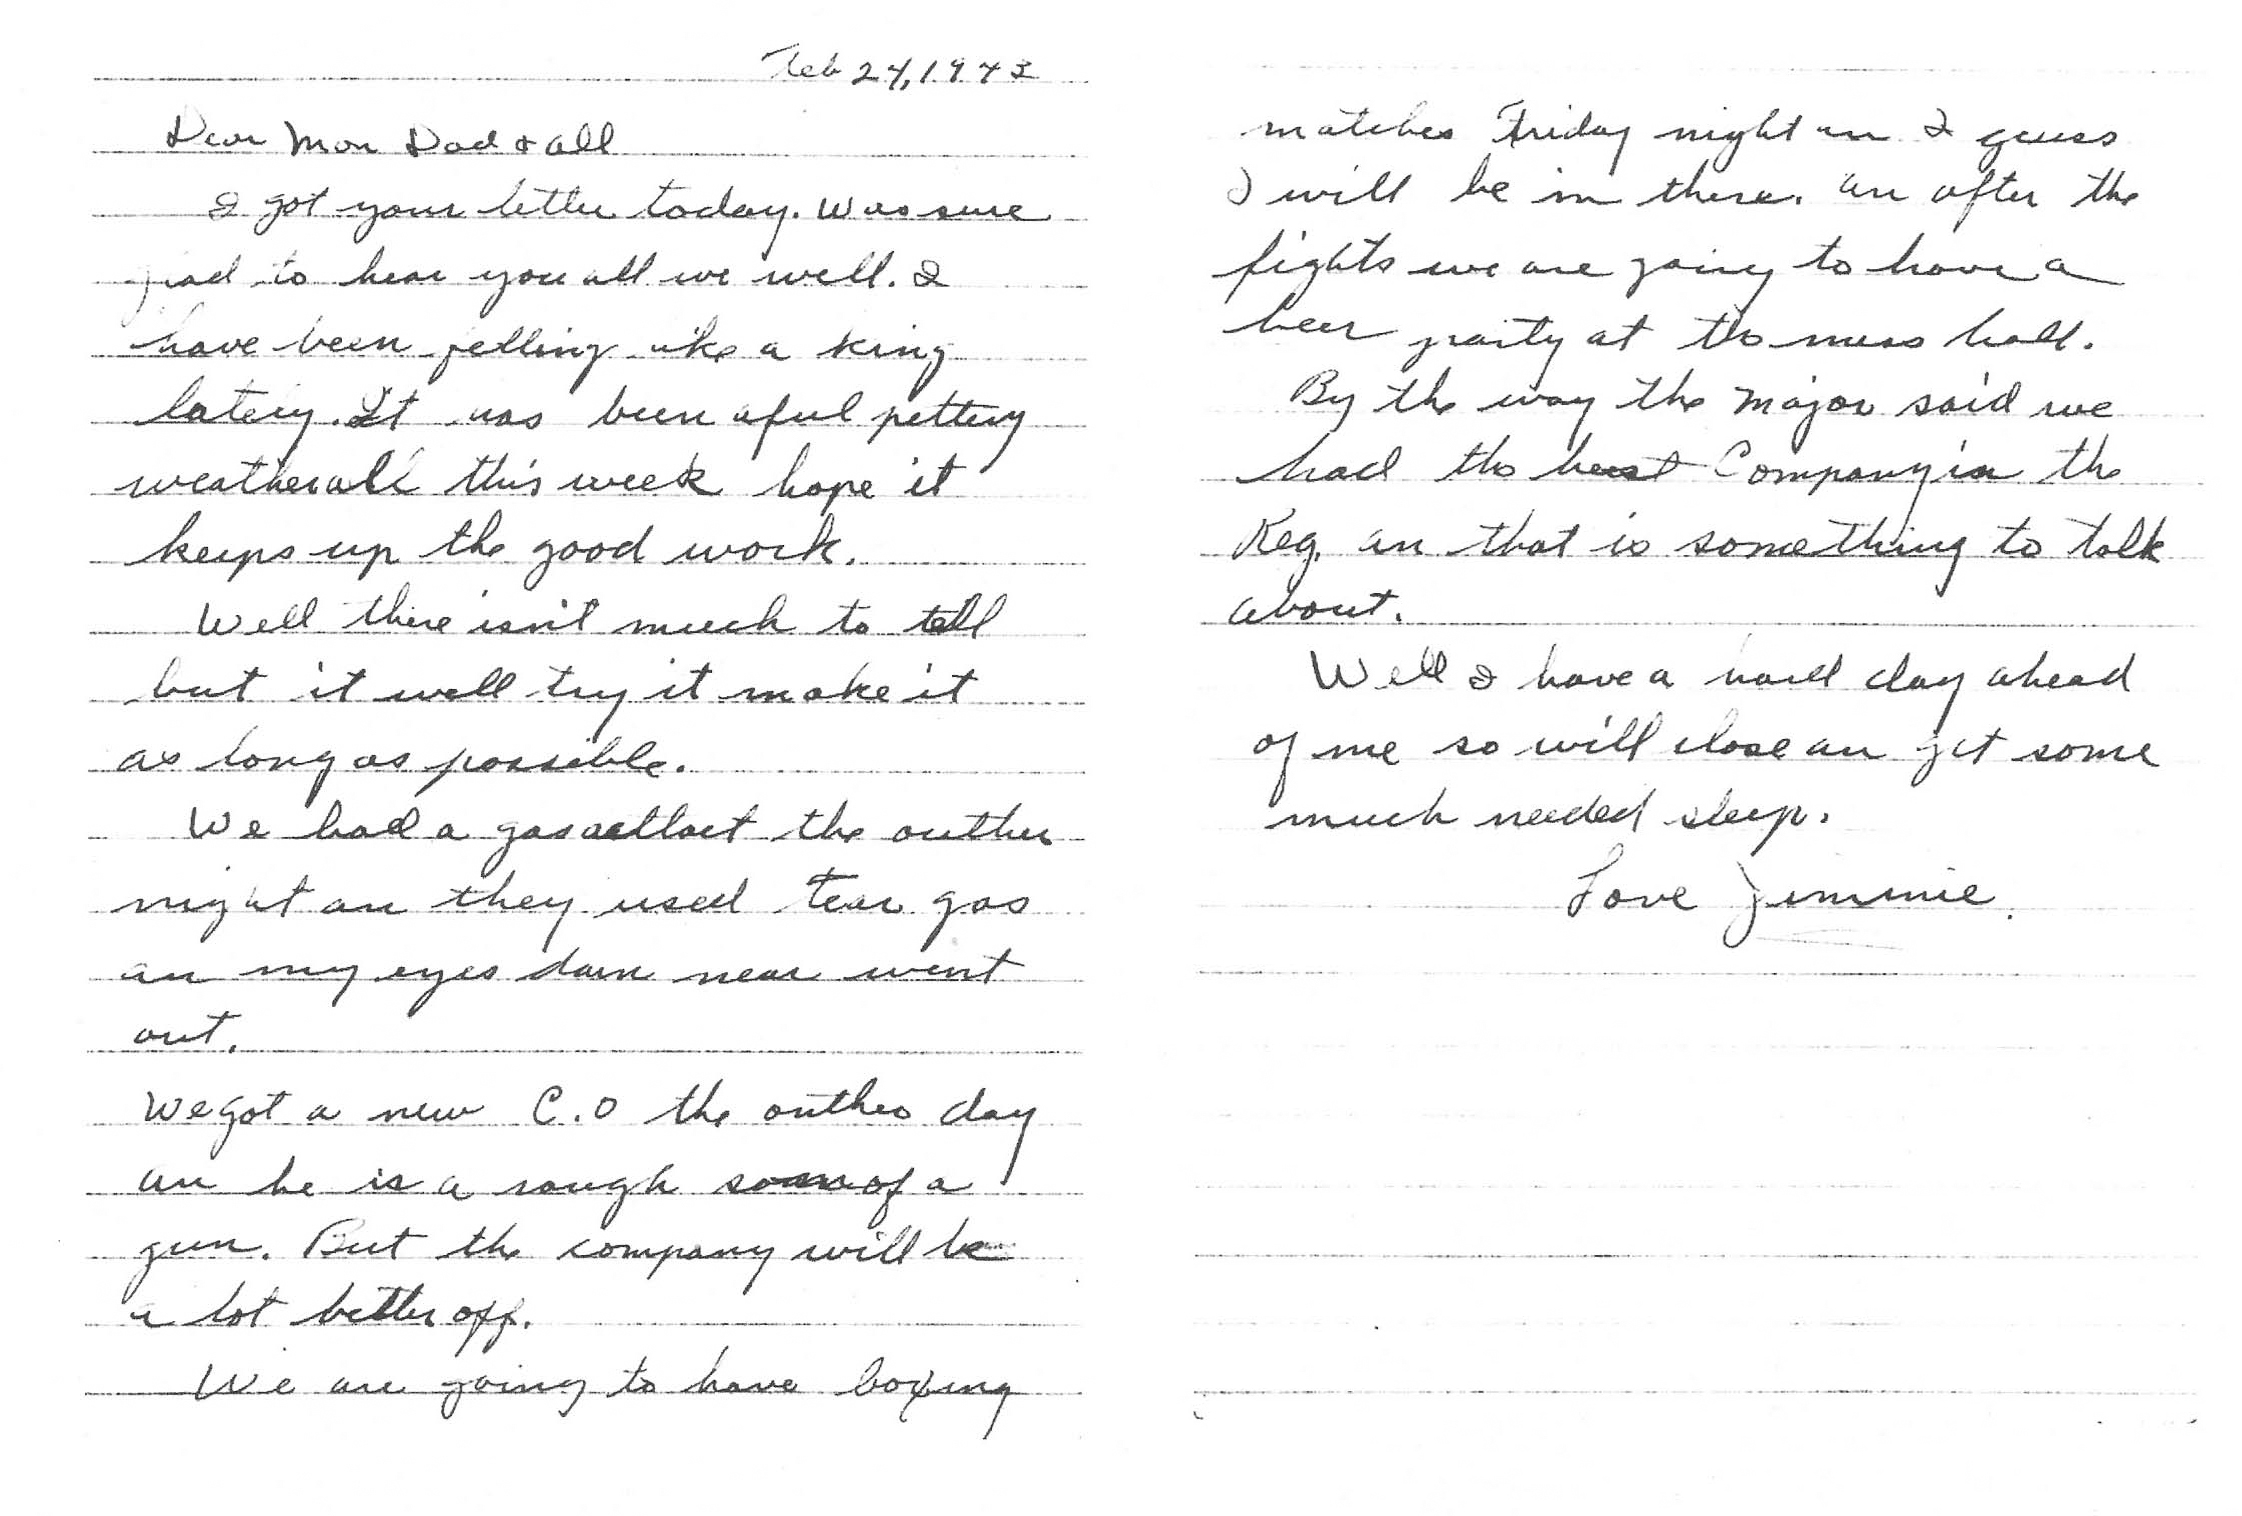 Feb 24, 1943
Dear Mom Dad & all
I got your letter today. Was sure
glad to hear you all are well. I
have been felling like a king
lately. It has been aful pettery
weather all this week hope it
keeps up the good work.
Well there isn't much to tell
but it well try it make it
as long as possible.
We had a gas the outher
night an they used tear gas
an my eyes darn near went
out.
We got a new C.O the outher day
an he is a rough son of a
gun. But the company will be
a lot better off.
We are going to have boxing
matches Friday night an I guess
I will be in there. an after the
fights we are going to have a
beer party at the mess hall.
By the way the Major said we
had the best Company in the
Reg. an that is something to talk
about.
Well I have a hard day ahead
of me so will close an get some
much needed sleep.
Love Jimmie.